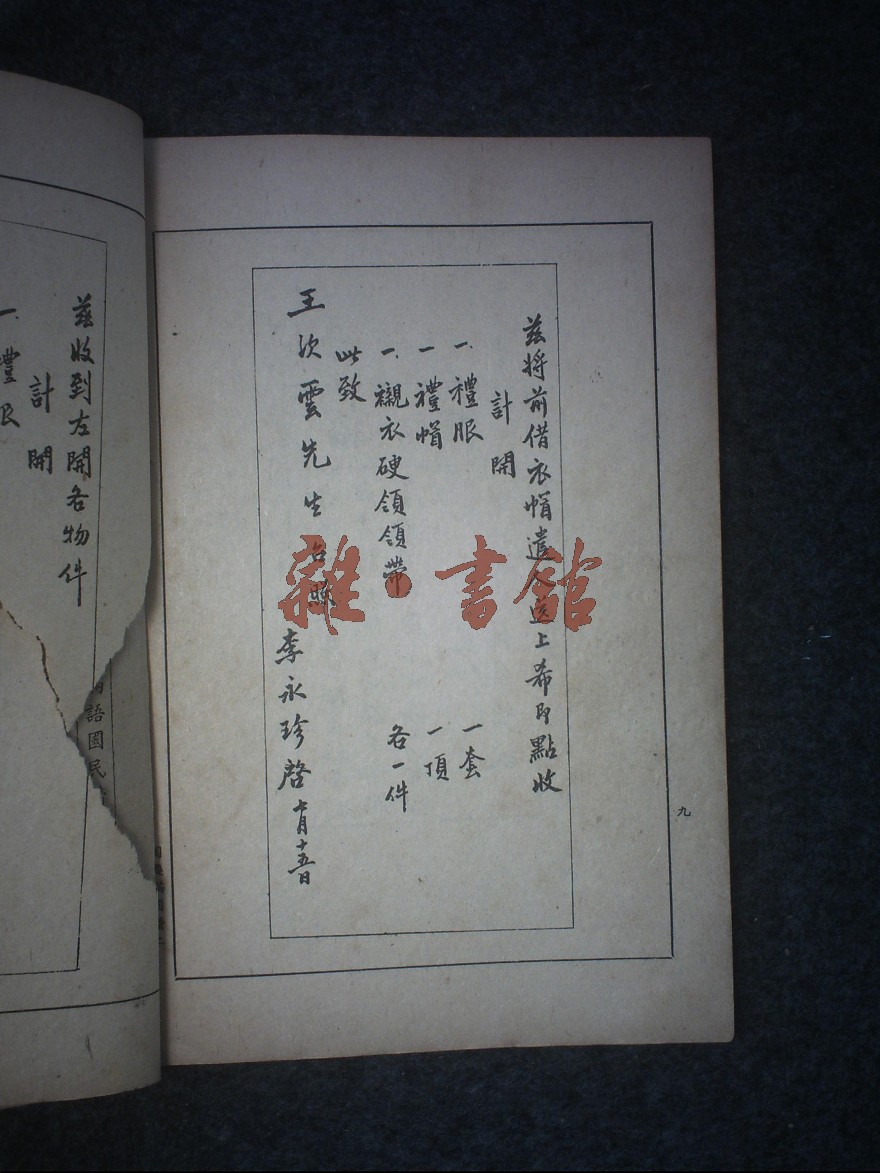 茲將前借衣帽遣人送上希即點收
計開
一禮服 一套
一禮帽 一頂
一襯衣硬領領帶 各一件
此致
王次雲先生台照
李永珍啓 十月十五日
九
茲收到左開各物件
計開
一禮服
語國民
雜·書館